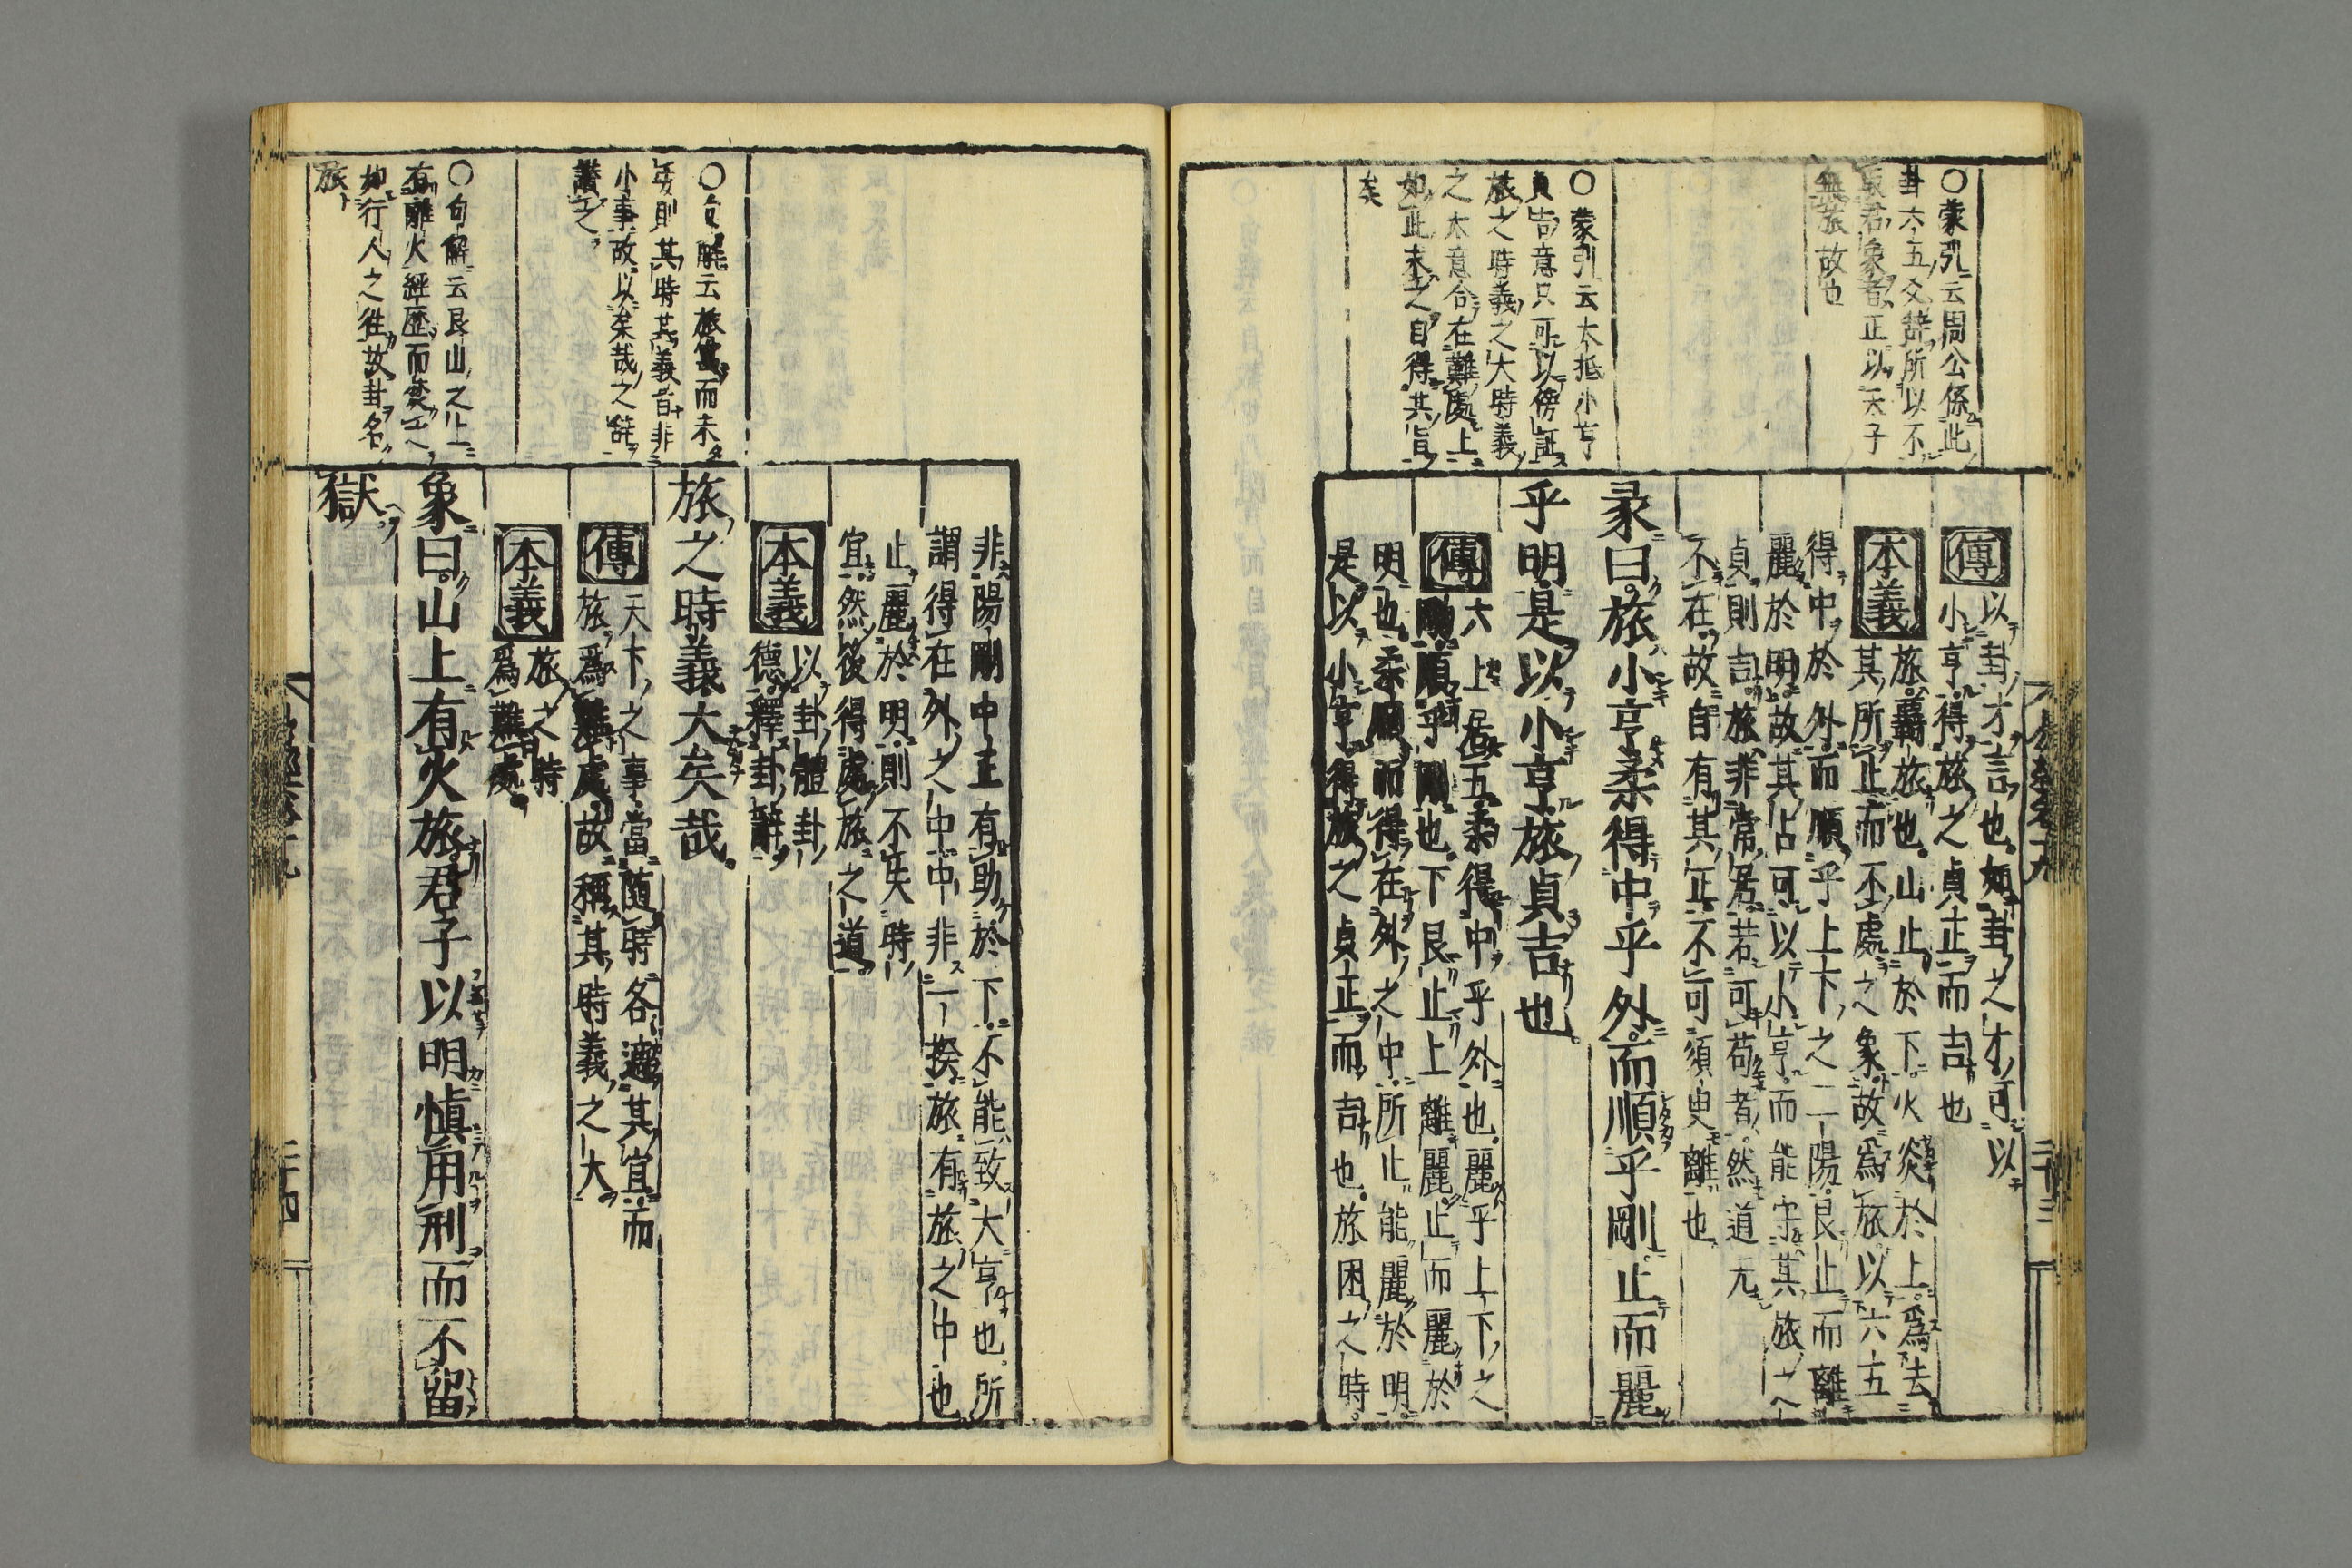 ○蒙引云周公係此
卦六五爻辞所以不
取君象者正以天子
無旅故也
○蒙引云大抵小亨
貞吉意只可以傍証
旅之時義之大時義
之本意合在難處上
如此求之自得其旨
矣
傳以卦才言也如卦之才可以
小亨得旅之貞正而吉也
本義旅羇旅也山止於下火炎於上爲去
其所止而不處之象故爲旅以六五
得中於外而順乎上下之二陽艮止而離
麗於明故其占可以小亨而能守其旅之
貞則吉旅非常居若可苟者然道无
不在故自有其正不可須臾離也
彖曰旅小亨柔得中乎外而順乎剛止而麗
乎明是以小亨旅貞吉也
傳六上居五柔得中乎外也麗乎上下之
剛順乎剛也下艮止上離麗止而麗於
明也柔順而得在外之中所止能麗於明
是以小亨得旅之貞正而吉也旅困之時
二十三
○句解云旅寓而未
安則其時其義皆非
小事故以矣哉之辞
讃之
○句解云艮山之上
有離火經歴而焚之
如行人之徃故卦名
旅
非陽剛中正有助於下不能致大亨也所
謂得在外之中中非一揆旅有旅之中也
止麗於明則不失時
宜然後得處旅之道
本義以卦體卦
德釋卦辭
旅之時義大矣哉
傳天下之事當随時各適其宜而
旅爲難處故稱其時義之大
本義旅之時
爲難處
象曰山上有火旅君子以明愼用刑而不留
獄
二十四